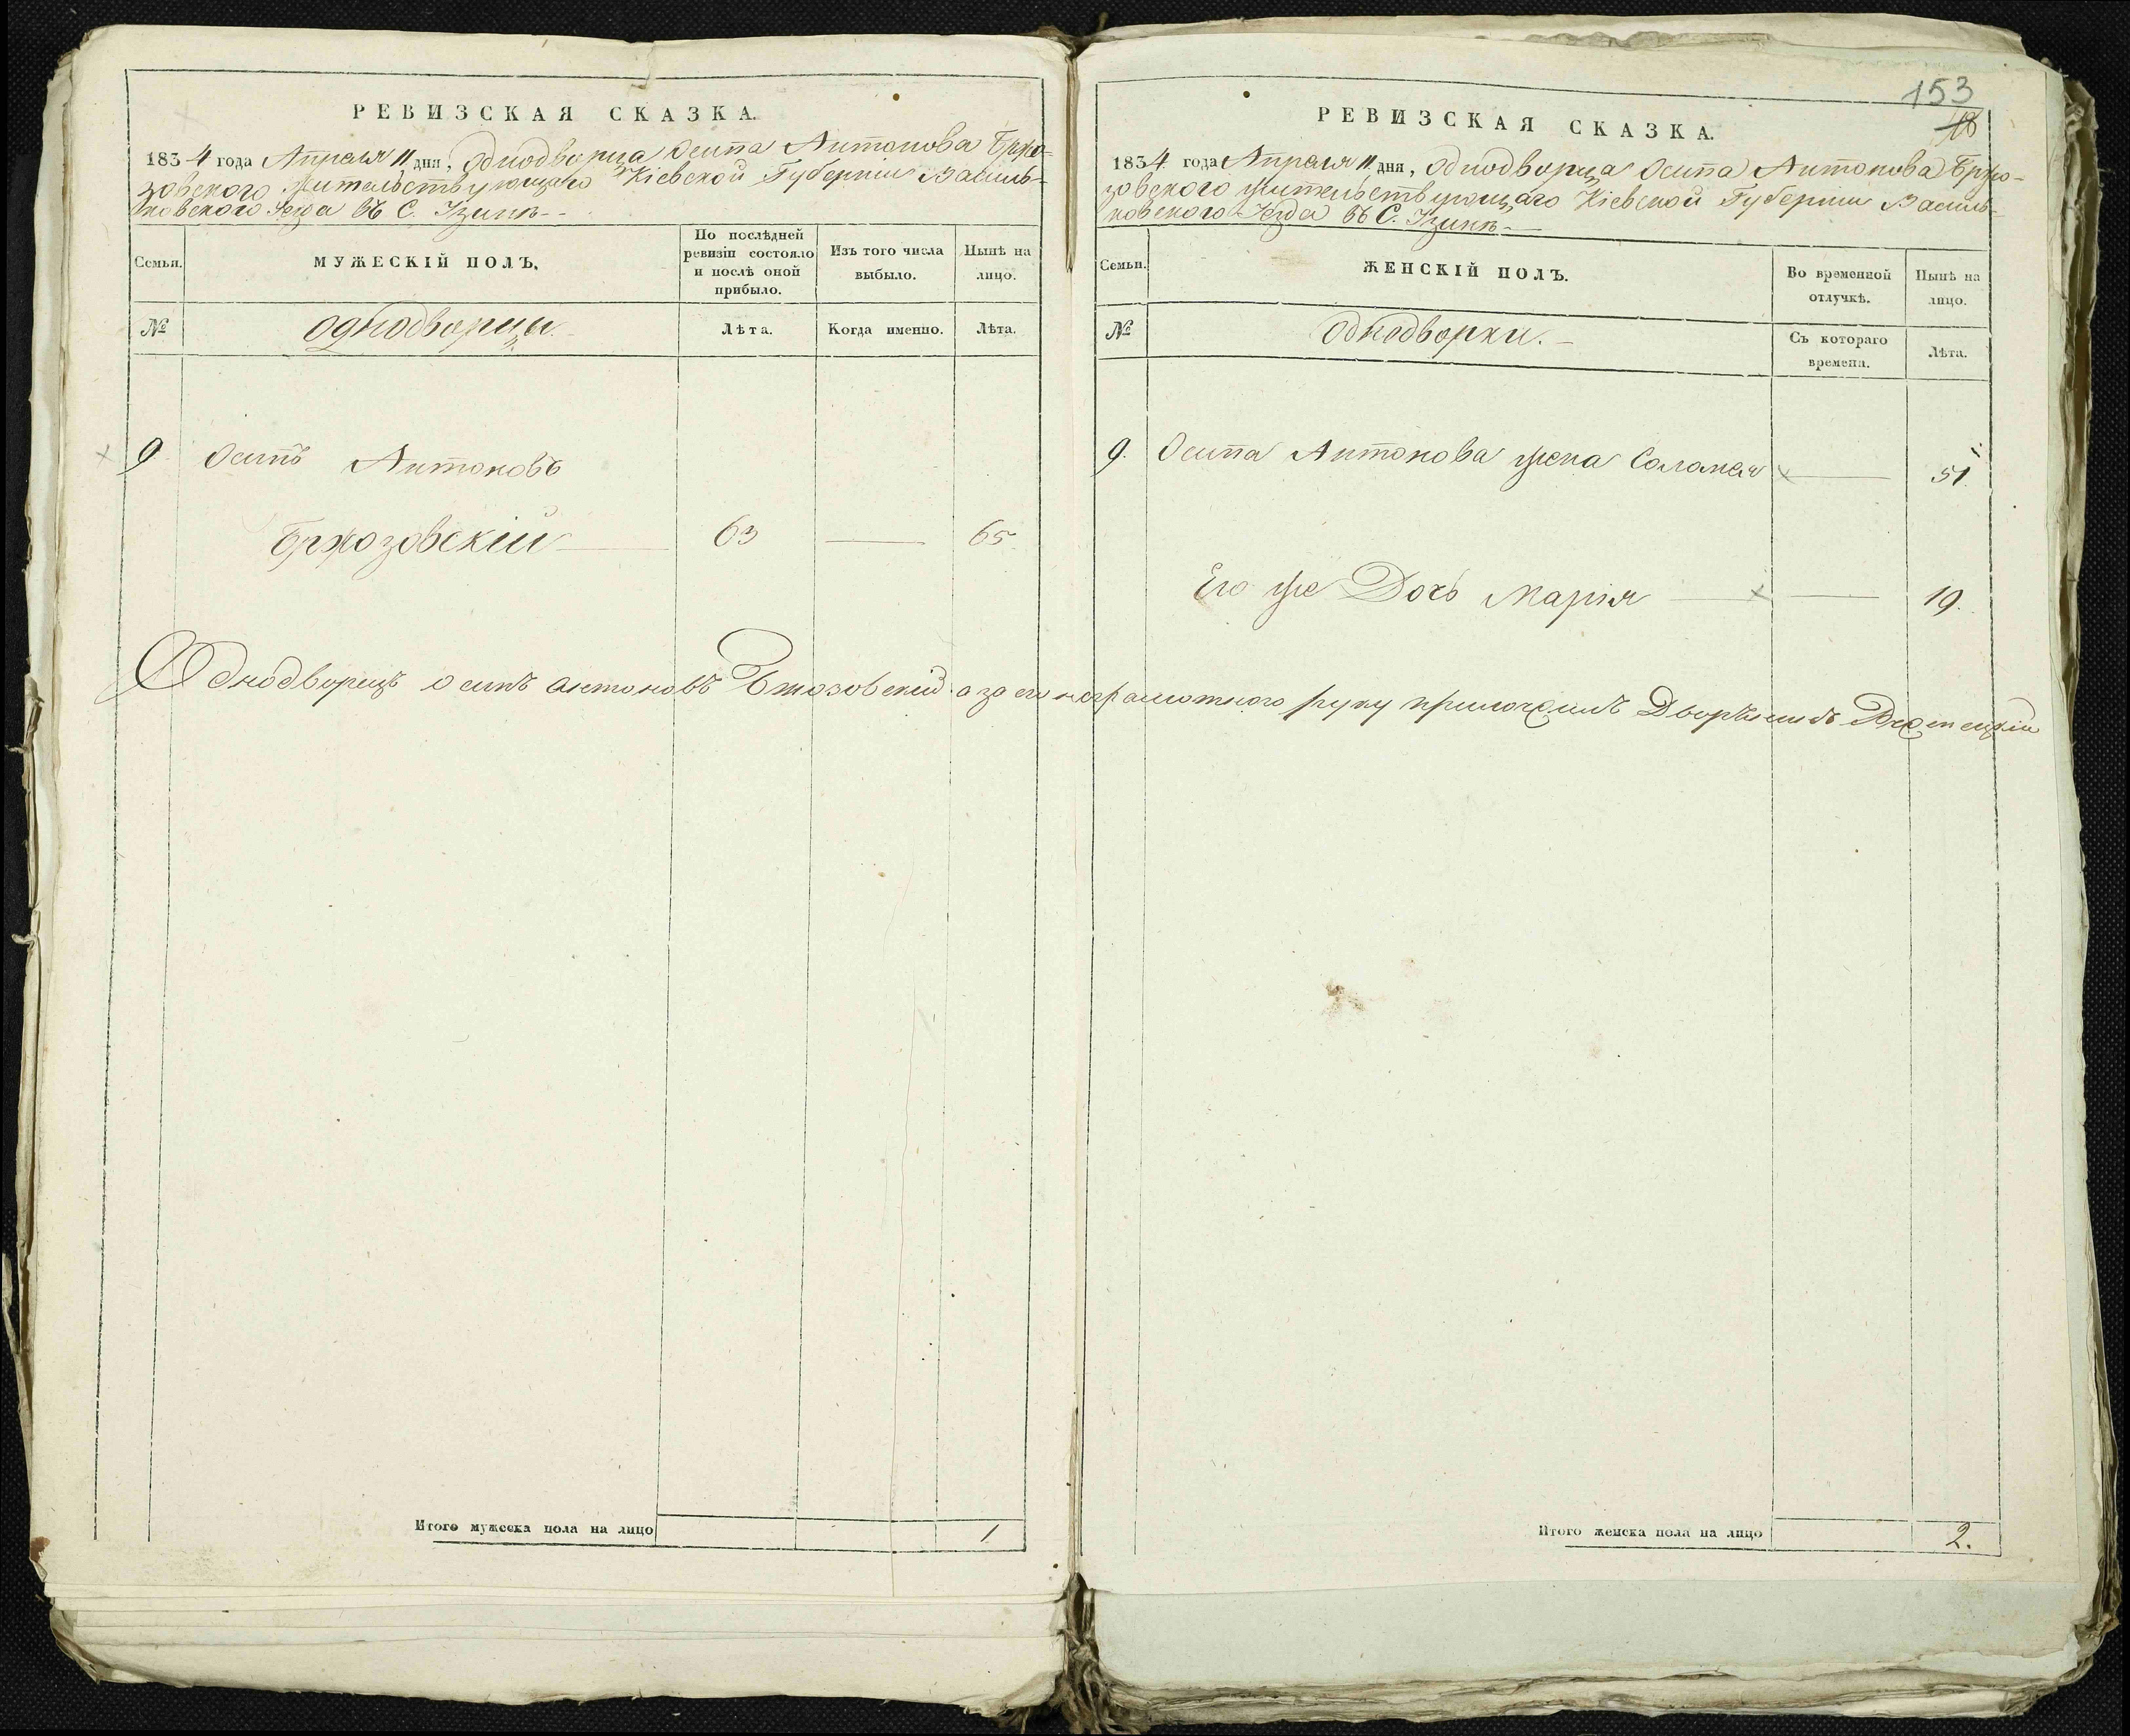 РЕВИЗСКАЯ СКАЗКА.
1834 года Апреля 11 дня, однодворца Осипа Антонова Бржо-
зовского жительствующаго Кіевской Губерніи Василь-
ковского Уезда въ С.
Семьи.
МУЖЕСКІЙ ПОЛЪ.
По послѣдней ревизіи состояло и послѣ оной прибыло.
Изъ того числа выбыло.
Нынѣ на лицо.
№
однодворцы.
Лѣта.
Когда именно.
Лѣта.
9 Осипъ Антоновъ
Бржозовскій 63 — 65.
Однодворецъ осипъ антоновъ Бжозовский а за его неграмотного руку приложилъ Дворянинъ
Итого мужеска пола на лицо 1
153
18
РЕВИЗСКАЯ СКАЗКА.
1834 года Апреля 11 дня, однодворца Осипа Антонова Бржо-
зовского жительствующаго Кіевской Губерніи Василь-
ковского Уезда въ С.
Семьи.
ЖЕНСКІЙ ПОЛЪ.
Во временной отлучкѣ.
Нынѣ на лицо.
№
однодворки.
Съ котораго времени.
Лѣта.
9. Осипа Антонова жена Соломея — 51.
Его же Дочь Марія — 19.
Итого женска пола на лицо 2.